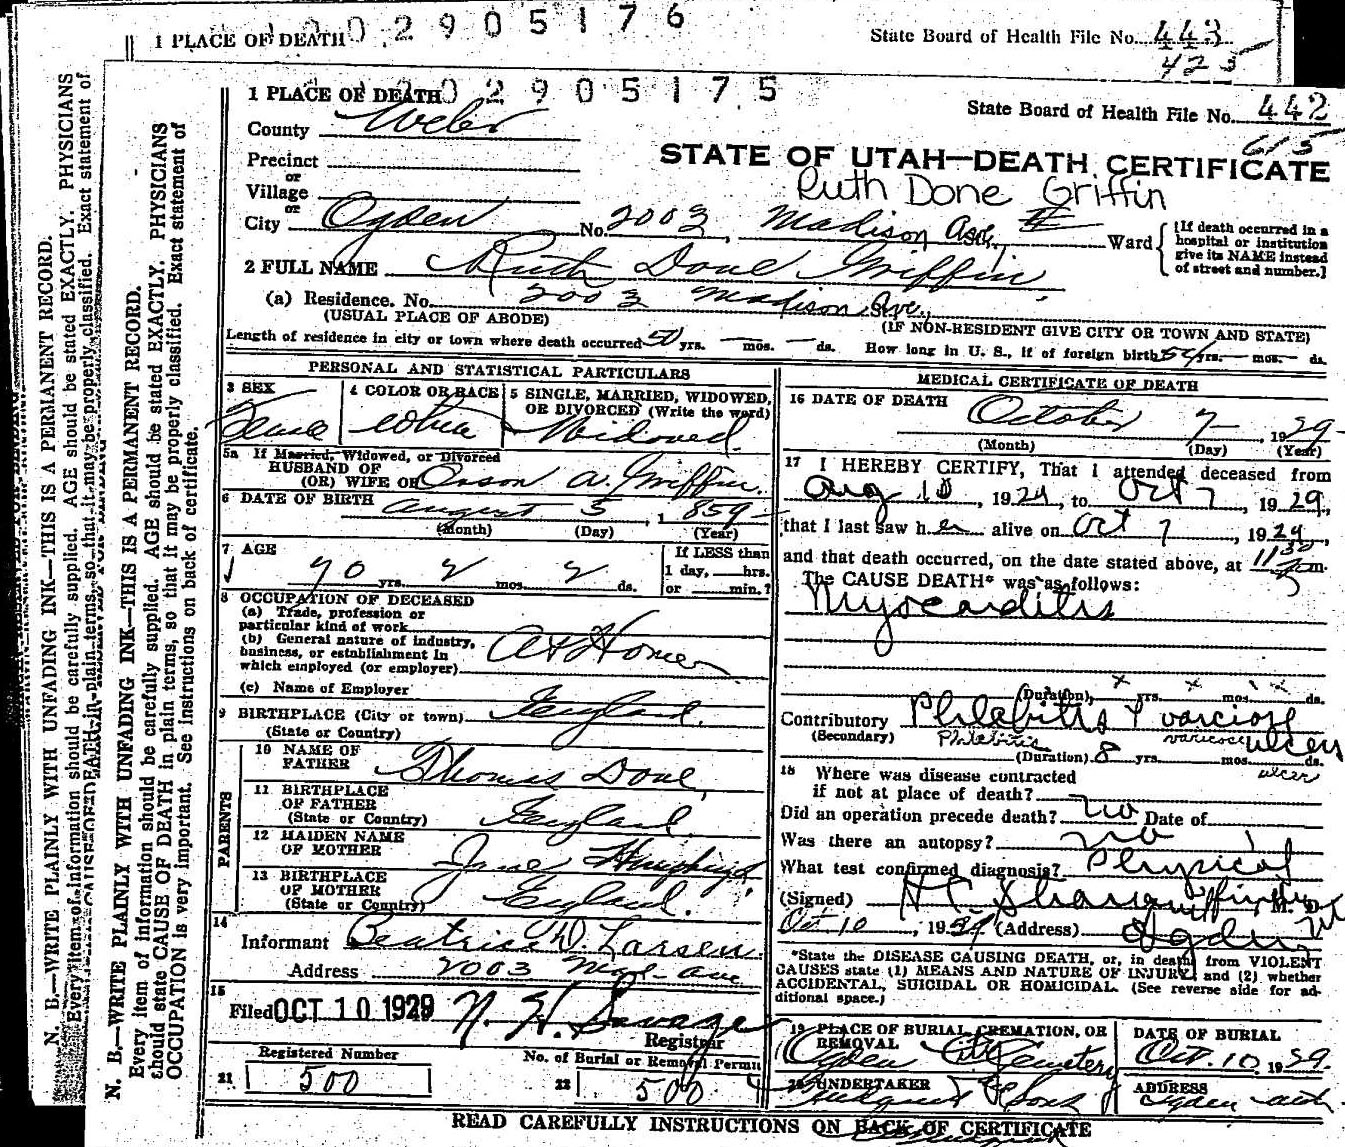 1 PLACE OF DEATH 2 9 0 5 1 7 6 State Board of Health File No. 443
425
N. B.—WRITE PLAINLY WITH UNFADING INK—THIS IS A PERMANENT RECORD.
Every item of information should be carefully supplied. AGE should be stated EXACTLY. PHYSICIANS
N. B.—WRITE PLAINLY WITH UNFADING INK—THIS IS A PERMANENT RECORD.
Every item of information should be carefully supplied. AGE should be stated EXACTLY. PHYSICIANS
should state CAUSE OF DEATH in plain terms, so that it may be properly classified. Exact statement of
OCCUPATION is very important. See instructions on back of certificate.
1 PLACE OF DEATH 0 2 9 0 5 1 7 5 State Board of Health File No. 442
615
County Weber
STATE OF UTAH—DEATH CERTIFICATE
Precinct
or
Ruth Done Griffin
Village
or
City Ogden No. 2003 Madison Ave, Ward
[If death occurred in a hospital or institution give its NAME instead of street and number.]
2 FULL NAME Ruth Done Griffin
(a) Residence. No. 2003 Madison Ave.,
(USUAL PLACE OF ABODE) (IF NON-RESIDENT GIVE CITY OR TOWN AND STATE)
Length of residence in city or town where death occurred 50 yrs. — mos. — ds. How long in U. S., if of foreign birth? yrs. — mos. — ds.
PERSONAL AND STATISTICAL PARTICULARS
3 SEX 4 COLOR OR RACE 5 SINGLE, MARRIED, WIDOWED,
OR DIVORCED (Write the word)
Widowed
5a If Married, Widowed, or Divorced
HUSBAND OF
(OR) WIFE OF Orson A. Griffin
6 DATE OF BIRTH August 5, 1859
(Month) (Day) (Year)
7 AGE If LESS than
1 day, hrs.
70 yrs. 2 mos. 2 ds. or min.?
8 OCCUPATION OF DECEASED
(a) Trade, profession or
particular kind of work
(b) General nature of industry,
business, or establishment in
which employed (or employer) At Home
(c) Name of Employer
9 BIRTHPLACE (City or town) England.
(State or Country)
PARENTS
10 NAME OF
FATHER Thomas Done,
11 BIRTHPLACE
OF FATHER
(State or Country) England.
12 MAIDEN NAME
OF MOTHER Jane
13 BIRTHPLACE
OF MOTHER
(State or Country) England.
14
Informant Beatrice D. Larsen
Address 2003 Mad— Ave
15
Filed OCT 10 1929 N. H. Savage
Registrar
Registered Number No. of Burial or Removal Permit
21 500 22 500
MEDICAL CERTIFICATE OF DEATH
16 DATE OF DEATH October 7, 1929
(Month) (Day) (Year)
17 I HEREBY CERTIFY, That I attended deceased from
Aug 10, 1929, to Oct 7, 1929,
that I last saw her alive on Oct 7, 1929,
and that death occurred, on the date stated above, at 11 30 m.
The CAUSE DEATH* was as follows:
Myocarditis
(Duration) x yrs. x mos. x ds.
Contributory Phlebitis & varciose
(Secondary) Phlebitis varicose ulcers
(Duration) 8 yrs. mos. ds.
ulcer
18 Where was disease contracted
if not at place of death?
Did an operation precede death? no Date of
Was there an autopsy? no
What test confirmed diagnosis? Physical
(Signed) M. D.
Oct 10, 1929 (Address) Ogden Ut
*State the DISEASE CAUSING DEATH, or, in death from VIOLENT
CAUSES state (1) MEANS AND NATURE OF INJURY, and (2) whether
ACCIDENTAL, SUICIDAL OR HOMICIDAL. (See reverse side for additional space.)
19 PLACE OF BURIAL, CREMATION, OR
REMOVAL
Ogden City Cemetery
DATE OF BURIAL
Oct. 10, 1929.
20 UNDERTAKER & Sons
ADDRESS
Ogden
READ CAREFULLY INSTRUCTIONS ON BACK OF CERTIFICATE